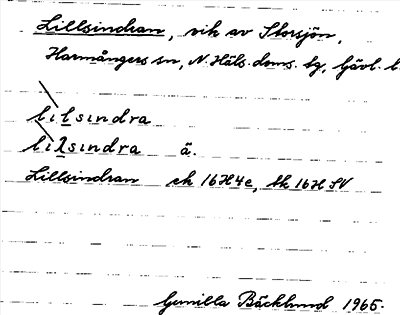 Lillsindran, vik av Storsjön,
Harmångers sn, N. Häls. doms. bg, Gävl. l.
lilsindra
lilsindra ä.
Lillsindran ek 16H4e, tk 16H SV
Gunilla Bäcklund 1965.